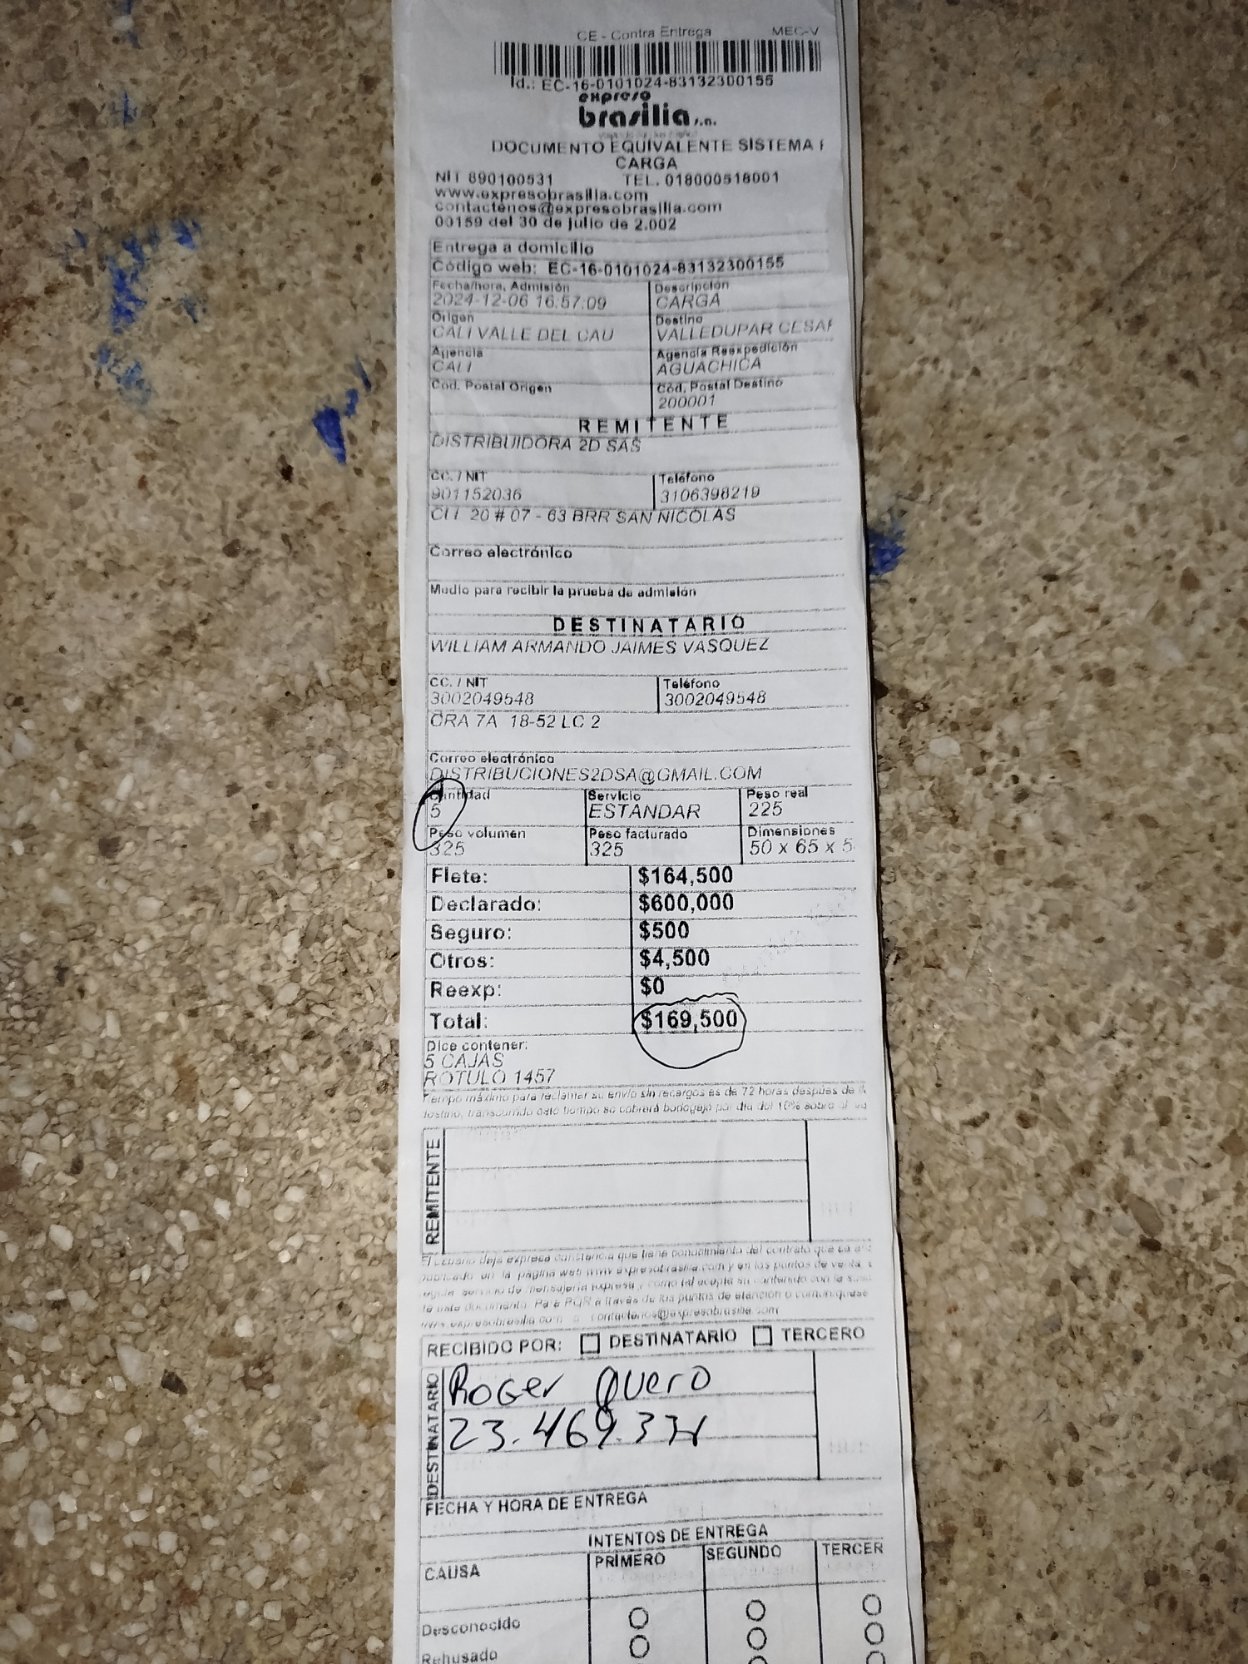 CE - Contra Entrega MEC-V
Id.: EC-16-0101024-83132300155
expreso
brasilia s.a.
DOCUMENTO EQUIVALENTE SISTEMA
CARGA
NIT 890100531 TEL. 018000518001
www.expresobrasilia.com
contactenos@expresobrasilia.com
00159 del 30 de julio de 2.002
Entrega a domicilio
Código web: EC-16-0101024-83132300155
Fecha/hora, Admisión Descripción
2024-12-06 16:57:09 CARGA
Origen Destino
CALI VALLE DEL CAU VALLEDUPAR CESAR
Agencia Agencia Reexpedición
CALI AGUACHICA
Cód. Postal Origen Cód. Postal Destino
200001
REMITENTE
DISTRIBUIDORA 2D SAS
CC. / NIT Teléfono
901152036 3106398219
CLL 20 # 07 - 63 BRR SAN NICOLAS
Correo electrónico
Medio para recibir la prueba de admisión
DESTINATARIO
WILLIAM ARMANDO JAIMES VASQUEZ
CC. / NIT Teléfono
3002049548 3002049548
CRA 7A 18-52 LC 2
Correo electrónico
DISTRIBUCIONES2DSA@GMAIL.COM
Cantidad Servicio Peso real
5 ESTANDAR 225
Peso volumen Peso facturado Dimensiones
325 325 50 x 65 x 5
Flete: $164,500
Declarado: $600,000
Seguro: $500
Otros: $4,500
Reexp: $0
Total: $169,500
Dice contener:
5 CAJAS
ROTULO 1457
Tiempo máximo para reclamar su envío sin recargos es de 72 horas después de
destino, transcurrido este tiempo se cobrará bodegaje por día del 10% sobre el
REMITENTE
El usuario deja expresa constancia que tiene conocimiento del contrato que
publicado en la página web www.expresobrasilia.com y en los puntos de venta,
servicio de mensajería expresa y como tal acepta su contenido con la
de este documento. Para PQR a través de los puntos de atención o comuníquese
www.expresobrasilia.com contactenos@expresobrasilia.com
RECIBIDO POR: DESTINATARIO TERCERO
DESTINATARIO
Roger Quero
23.469.
FECHA Y HORA DE ENTREGA
INTENTOS DE ENTREGA
CAUSA PRIMERO SEGUNDO TERCER
Desconocido
Rehusado